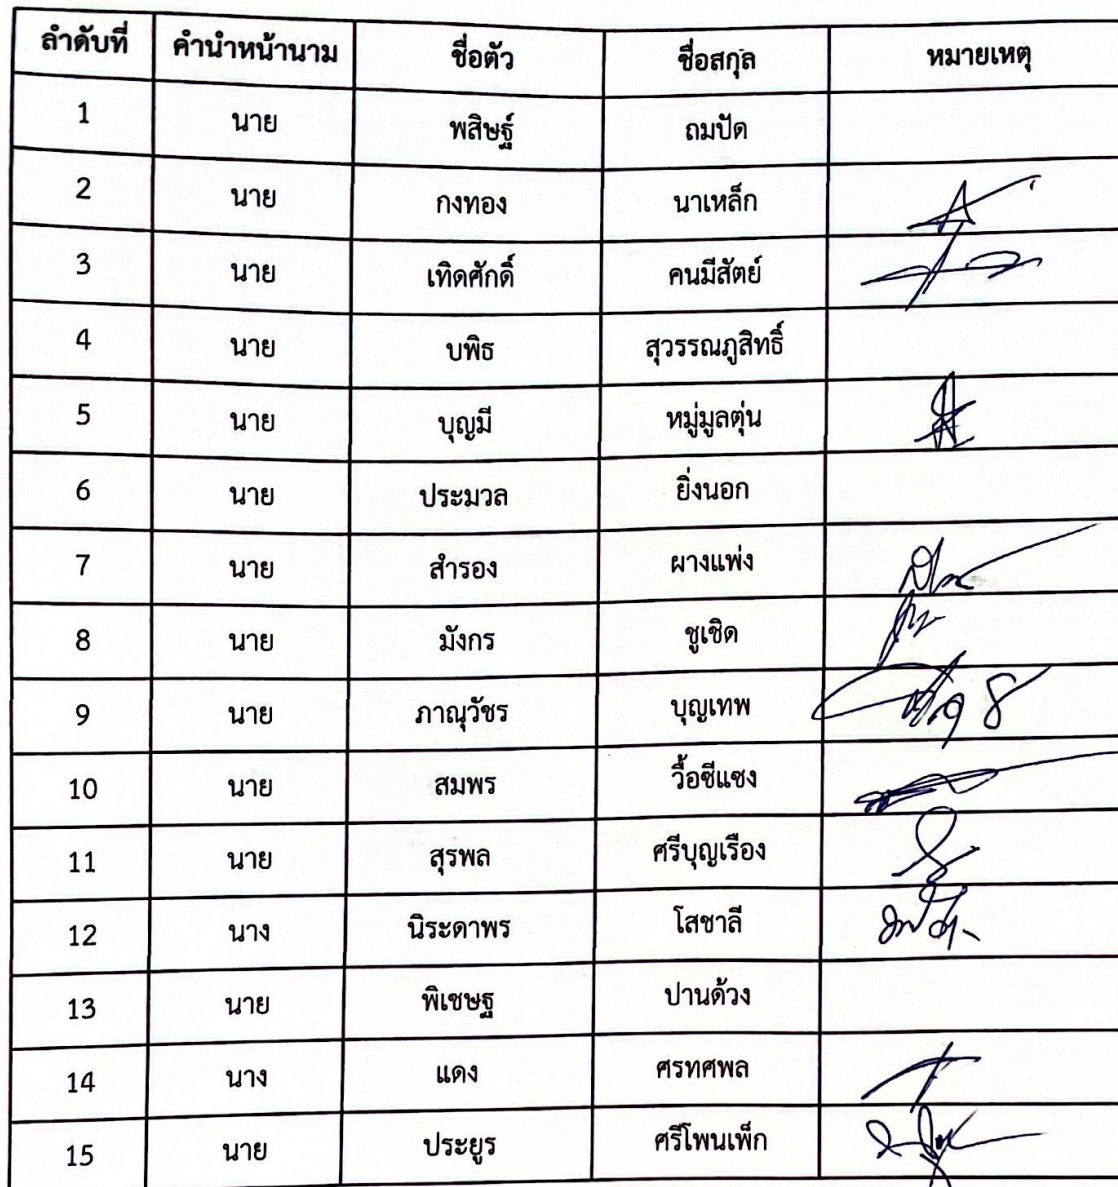 ลำดับที่ คำนำหน้านาม ชื่อตัว ชื่อสกุล หมายเหตุ
1 นาย พสิษฐ์ ถมปัด
2 นาย กงทอง นาเหล็ก
3 นาย เทิดศักดิ์ คนมีสัตย์
4 นาย บพิธ สุวรรณภูสิทธิ์
5 นาย บุญมี หมู่มูลตุ่น
6 นาย ประมวล ยิ่งนอก
7 นาย สำรอง ผางแพ่ง
8 นาย มังกร ชูเชิด
9 นาย ภาณุวัชร บุญเทพ
10 นาย สมพร วื้อซีแซง
11 นาย สุรพล ศรีบุญเรือง
12 นาง นิระดาพร โสชาลี
13 นาย พิเชษฐ ปานด้วง
14 นาง แดง ศรทศพล
15 นาย ประยูร ศรีโพนเพ็ก